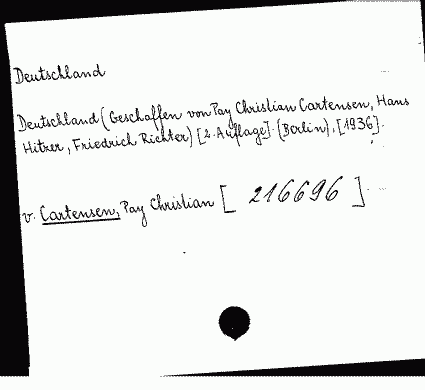 Deutschland
Deutschland (Geschaffen von Pay Christian Cartensen, Hans
Hitzer, Friedrich Richter) [2. Auflage]. (Berlin), [1936].
v. Cartensen, Pay Christian [216696]